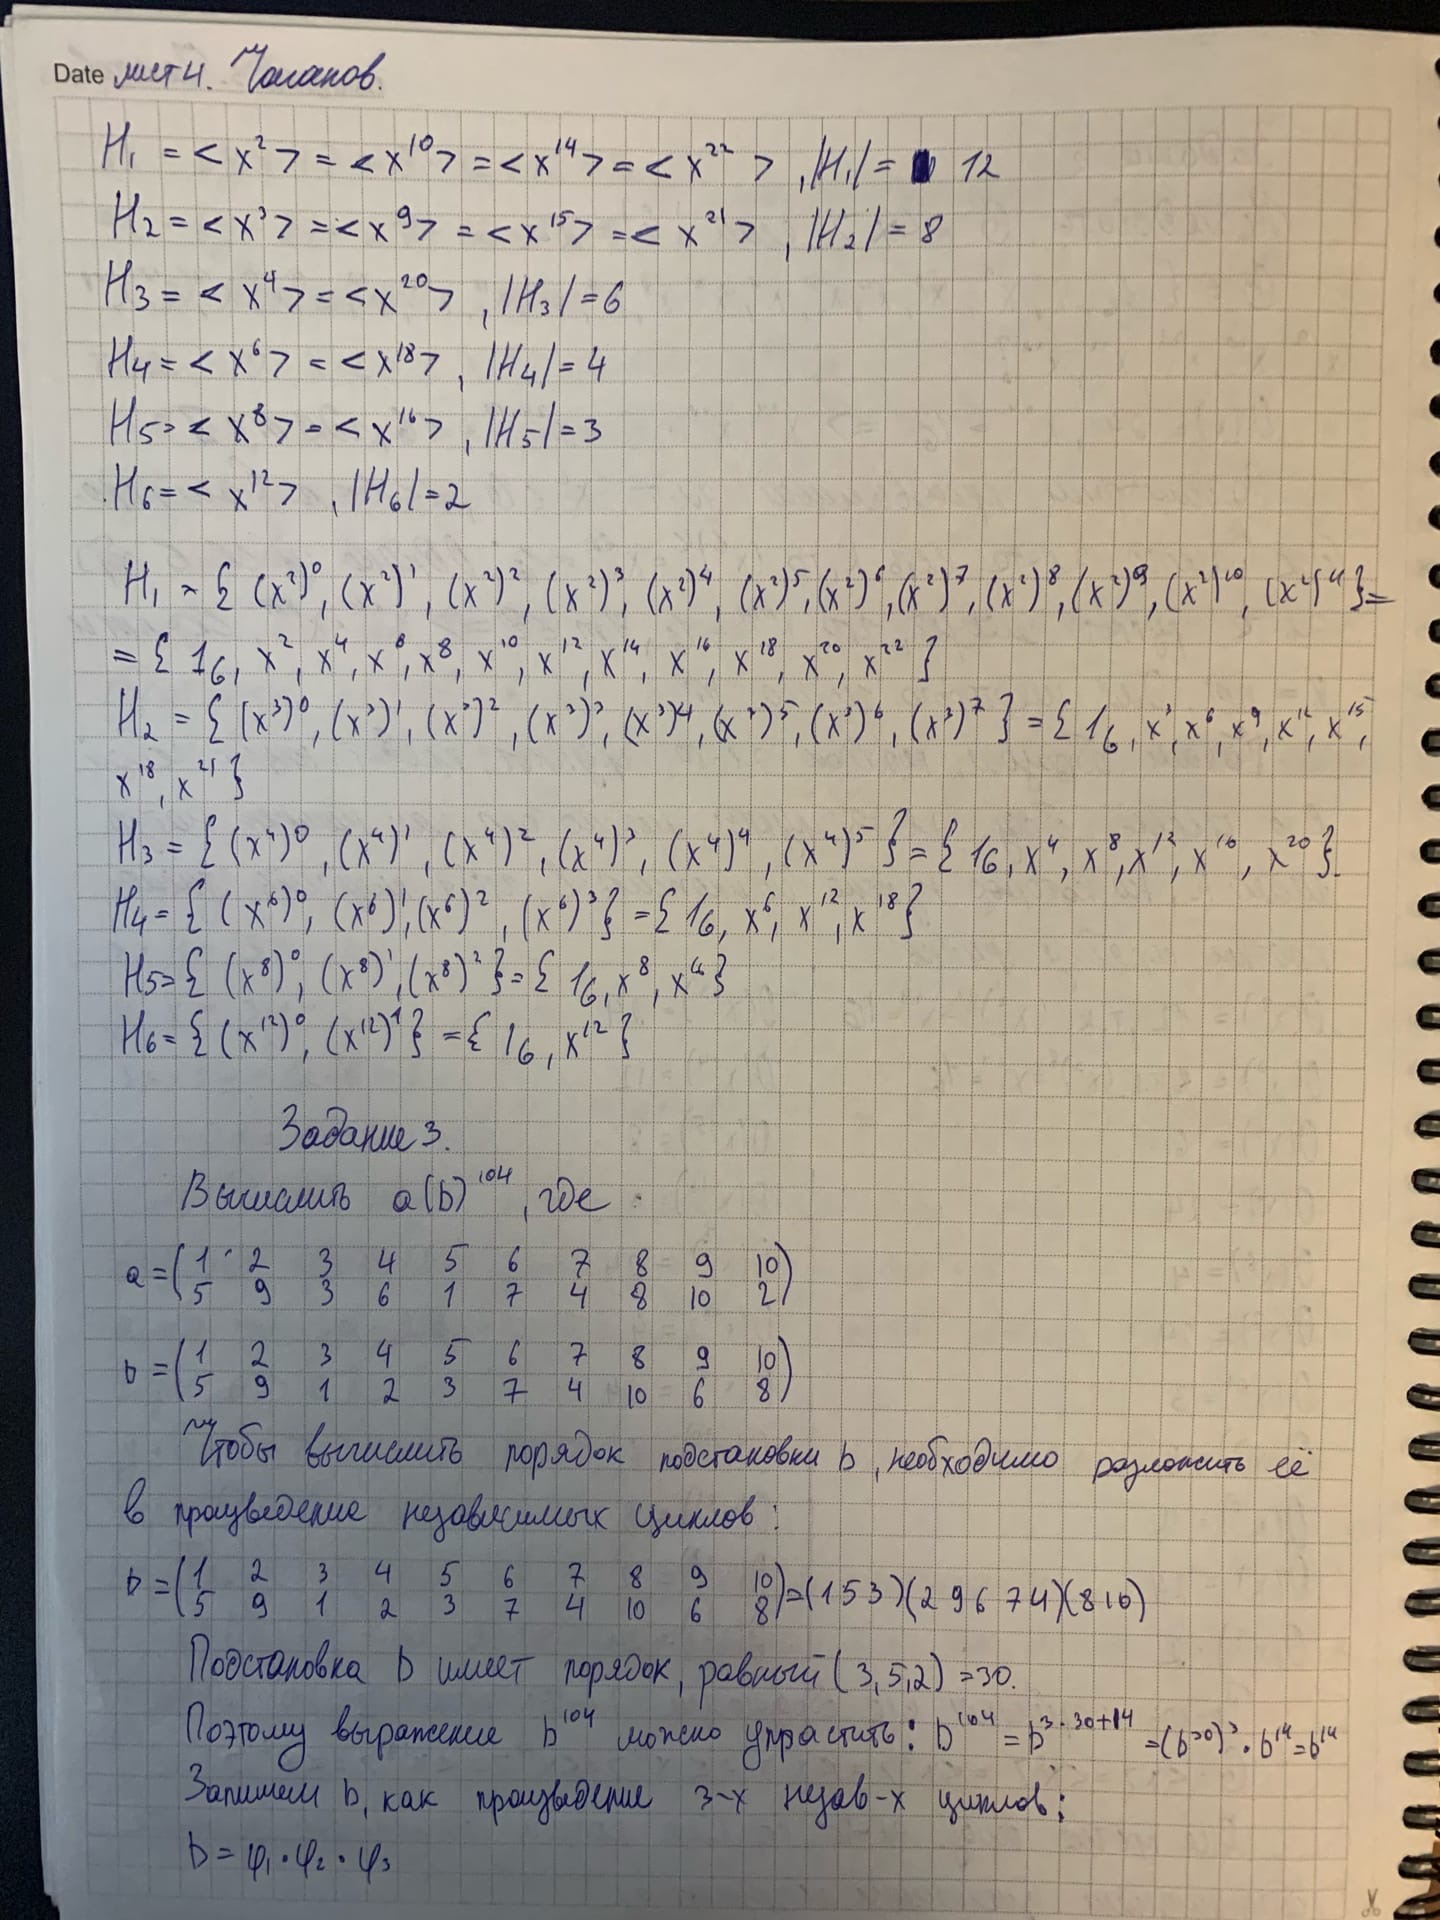 Date лист 4. Чаганов.
H₁ = < x² > = < x¹⁰ > = < x¹⁴ > = < x²² > , |H₁| = 12
H₂ = < x³ > = < x⁹ > = < x¹⁵ > = < x²¹ > , |H₂| = 8
H₃ = < x⁴ > = < x²⁰ > , |H₃| = 6
H₄ = < x⁶ > = < x¹⁸ > , |H₄| = 4
H₅ = < x⁸ > = < x¹⁶ > , |H₅| = 3
H₆ = < x¹² > , |H₆| = 2
H₁ = { (x²)⁰, (x²)¹, (x²)², (x²)³, (x²)⁴, (x²)⁵, (x²)⁶, (x²)⁷, (x²)⁸, (x²)⁹, (x²)¹⁰, (x²)¹¹ } =
= { 1_G, x², x⁴, x⁶, x⁸, x¹⁰, x¹², x¹⁴, x¹⁶, x¹⁸, x²⁰, x²² }
H₂ = { (x³)⁰, (x³)¹, (x³)², (x³)³, (x³)⁴, (x³)⁵, (x³)⁶, (x³)⁷ } = { 1_G, x³, x⁶, x⁹, x¹², x¹⁵,
x¹⁸, x²¹ }
H₃ = { (x⁴)⁰, (x⁴)¹, (x⁴)², (x⁴)³, (x⁴)⁴, (x⁴)⁵ } = { 1_G, x⁴, x⁸, x¹², x¹⁶, x²⁰ }.
H₄ = { (x⁶)⁰, (x⁶)¹, (x⁶)², (x⁶)³ } = { 1_G, x⁶, x¹², x¹⁸ }
H₅ = { (x⁸)⁰, (x⁸)¹, (x⁸)² } = { 1_G, x⁸, x¹⁶ }
H₆ = { (x¹²)⁰, (x¹²)¹ } = { 1_G, x¹² }
Задание 3.
Вычислить a(b)¹⁰⁴, где :
a = (1 2 3 4 5 6 7 8 9 10)
5 9 3 6 1 7 4 8 10 2
b = (1 2 3 4 5 6 7 8 9 10)
5 9 1 2 3 7 4 10 6 8
Чтобы вычислить порядок подстановки b, необходимо разложить её
в произведение независимых циклов:
b = (1 2 3 4 5 6 7 8 9 10) = (1 5 3)(2 9 6 7 4)(8 10)
5 9 1 2 3 7 4 10 6 8
Подстановка b имеет порядок, равный (3,5,2) = 30.
Поэтому выражение b¹⁰⁴ можно упрастить: b¹⁰⁴ = b³·³⁰⁺¹⁴ = (b³⁰)³ · b¹⁴ = b¹⁴
Запишем b, как произведение 3-х незав-х циклов:
b = φ₁ · φ₂ · φ₃